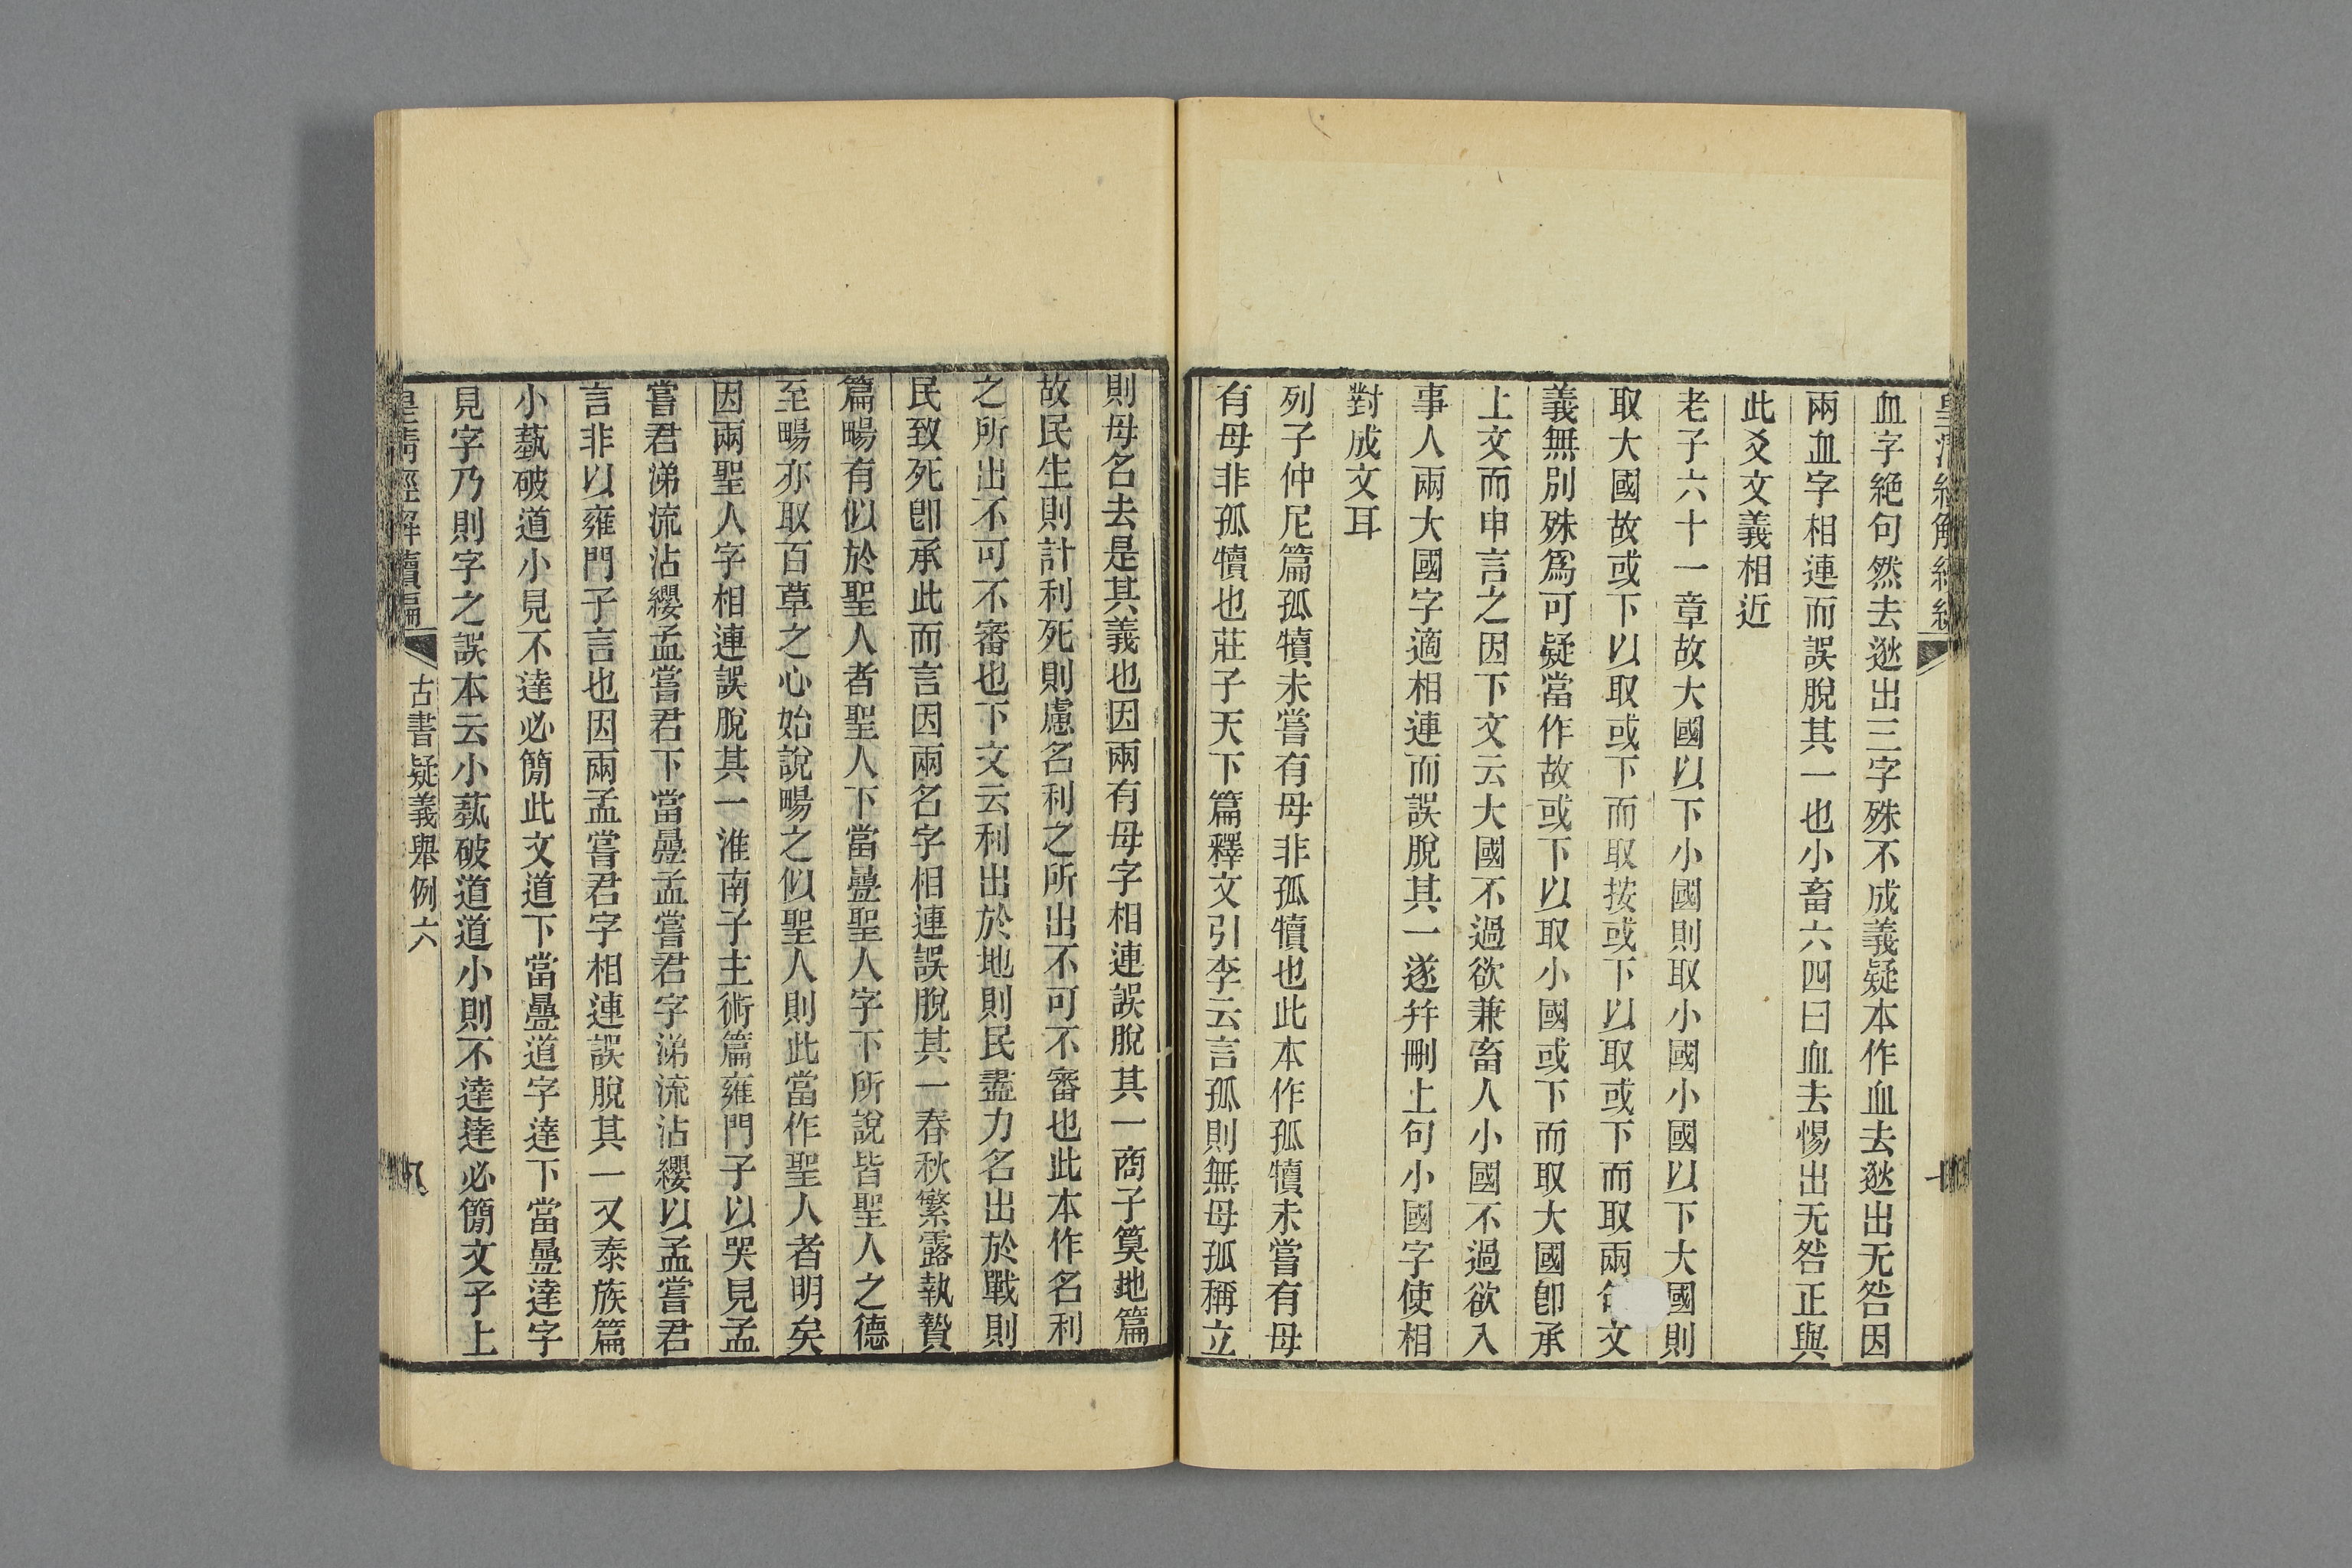 血字絶句然去逖出三字殊不成義疑本作血去逖出无咎因
兩血字相連而誤脫其一也小畜六四曰血去惕出无咎正與
此爻文義相近
老子六十一章故大國以下小國則取小國小國以下大國則
取大國故或下以取或下而取按或下以取或下而取兩文
義無別殊爲可疑當作故或下以取小國或下而取大國卽承
上文而申言之因下文云大國不過欲兼畜人小國不過欲入
事人兩大國字適相連而誤脫其一遂幷刪上句小國字使相
對成文耳
列子仲尼篇孤犢未嘗有母非孤犢也此本作孤犢未嘗有母
有母非孤犢也莊子天下篇釋文引李云言孤則無母孤稱立
則母名去是其義也因兩有母字相連誤脫其一商子筭地篇
故民生則計利死則慮名利之所出不可不審也此本作名利
之所出不可不審也下文云利出於地則民盡力名出於戰則
民致死卽承此而言因兩名字相連誤脫其一春秋繁露執贄
篇暢有似於聖人者聖人下當疊聖人字下所說皆聖人之德
至暢亦取百草之心始說暢之似聖人則此當作聖人者明矣
因兩聖人字相連誤脫其一淮南子主術篇雍門子以哭見孟
嘗君涕流沾纓孟嘗君下當疊孟嘗君字涕流沾纓以孟嘗君
言非以雍門子言也因兩孟嘗君字相連誤脫其一又泰族篇
小蓺破道小見不達必簡此文道下當疊道字達下當疊達字
見字乃則字之誤本云小蓺破道道小則不達達必簡文子上
皇淸經解續編 古書疑義舉例六 八